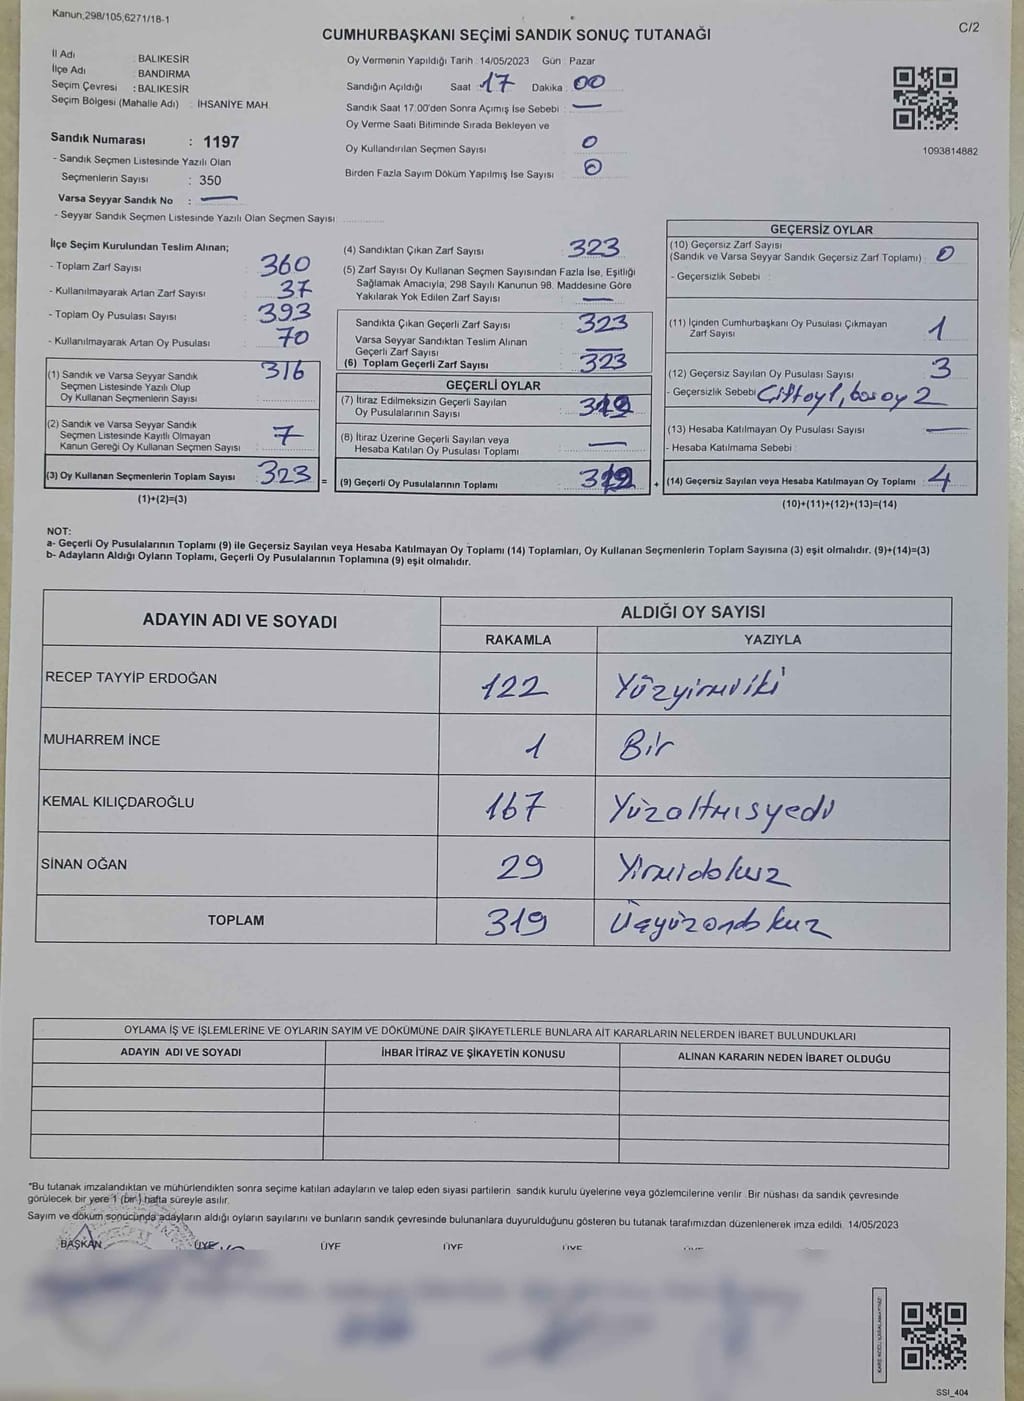 Kanun,298/105,6271/18-1
C/2
CUMHURBAŞKANI SEÇİMİ SANDIK SONUÇ TUTANAĞI
İl Adı : BALIKESİR
İlçe Adı : BANDIRMA
Seçim Çevresi : BALIKESİR
Seçim Bölgesi (Mahalle Adı) : İHSANİYE MAH.
Oy Vermenin Yapıldığı Tarih : 14/05/2023 Gün : Pazar
Sandığın Açıldığı Saat 17 Dakika : 00
Sandık Saat 17:00'den Sonra Açımış İse Sebebi : —
Oy Verme Saati Bitiminde Sırada Bekleyen ve
Oy Kullandırılan Seçmen Sayısı 0
Birden Fazla Sayım Döküm Yapılmış İse Sayısı : 0
1093814882
Sandık Numarası : 1197
- Sandık Seçmen Listesinde Yazılı Olan
Seçmenlerin Sayısı : 350
Varsa Seyyar Sandık No : —
- Seyyar Sandık Seçmen Listesinde Yazılı Olan Seçmen Sayısı :
İlçe Seçim Kurulundan Teslim Alınan;
- Toplam Zarf Sayısı : 360
- Kullanılmayarak Artan Zarf Sayısı : 37
- Toplam Oy Pusulası Sayısı : 393
- Kullanılmayarak Artan Oy Pusulası : 70
(1) Sandık ve Varsa Seyyar Sandık
Seçmen Listesinde Yazılı Olup
Oy Kullanan Seçmenlerin Sayısı : 316
(2) Sandık ve Varsa Seyyar Sandık
Seçmen Listesinde Kayıtlı Olmayan
Kanun Gereği Oy Kullanan Seçmen Sayısı : 7
(3) Oy Kullanan Seçmenlerin Toplam Sayısı : 323 =
(1)+(2)=(3)
(4) Sandıktan Çıkan Zarf Sayısı : 323
(5) Zarf Sayısı Oy Kullanan Seçmen Sayısından Fazla İse, Eşitliği
Sağlamak Amacıyla, 298 Sayılı Kanunun 98. Maddesine Göre
Yakılarak Yok Edilen Zarf Sayısı : —
Sandıkta Çıkan Geçerli Zarf Sayısı : 323
Varsa Seyyar Sandıktan Teslim Alınan
Geçerli Zarf Sayısı : —
(6) Toplam Geçerli Zarf Sayısı : 323
GEÇERLİ OYLAR
(7) İtiraz Edilmeksizin Geçerli Sayılan
Oy Pusulalarının Sayısı : 319
(8) İtiraz Üzerine Geçerli Sayılan veya
Hesaba Katılan Oy Pusulası Toplamı : —
(9) Geçerli Oy Pusulalarının Toplamı : 319 +
GEÇERSİZ OYLAR
(10) Geçersiz Zarf Sayısı
(Sandık ve Varsa Seyyar Sandık Geçersiz Zarf Toplamı) : 0
- Geçersizlik Sebebi :
(11) İçinden Cumhurbaşkanı Oy Pusulası Çıkmayan
Zarf Sayısı : 1
(12) Geçersiz Sayılan Oy Pusulası Sayısı : 3
- Geçersizlik Sebebi : Çift oy 1, boş oy 2
(13) Hesaba Katılmayan Oy Pusulası Sayısı : —
- Hesaba Katılmama Sebebi :
(14) Geçersiz Sayılan veya Hesaba Katılmayan Oy Toplamı : 4
(10)+(11)+(12)+(13)=(14)
NOT:
a- Geçerli Oy Pusulalarının Toplamı (9) ile Geçersiz Sayılan veya Hesaba Katılmayan Oy Toplamı (14) Toplamları, Oy Kullanan Seçmenlerin Toplam Sayısına (3) eşit olmalıdır. (9)+(14)=(3)
b- Adayların Aldığı Oyların Toplamı, Geçerli Oy Pusulalarının Toplamına (9) eşit olmalıdır.
ADAYIN ADI VE SOYADI ALDIĞI OY SAYISI
RAKAMLA YAZIYLA
RECEP TAYYİP ERDOĞAN 122 Yüzyirmiiki
MUHARREM İNCE 1 Bir
KEMAL KILIÇDAROĞLU 167 Yüzaltmışyedi
SİNAN OĞAN 29 Yirmidokuz
TOPLAM 319 Üçyüzondokuz
OYLAMA İŞ VE İŞLEMLERİNE VE OYLARIN SAYIM VE DÖKÜMÜNE DAİR ŞİKAYETLERLE BUNLARA AİT KARARLARIN NELERDEN İBARET BULUNDUKLARI
ADAYIN ADI VE SOYADI İHBAR İTİRAZ VE ŞİKAYETİN KONUSU ALINAN KARARIN NEDEN İBARET OLDUĞU
*Bu tutanak imzalandıktan ve mühürlendikten sonra seçime katılan adayların ve talep eden siyasi partilerin sandık kurulu üyelerine veya gözlemcilerine verilir. Bir nüshası da sandık çevresinde
görülecek bir yere 1 (bir) hafta süreyle asılır.
Sayım ve döküm sonucunda adayların aldığı oyların sayılarını ve bunların sandık çevresinde bulunanlara duyurulduğunu gösteren bu tutanak tarafımızdan düzenlenerek imza edildi. 14/05/2023
BAŞKAN ÜYE ÜYE ÜYE ÜYE
SSI_404